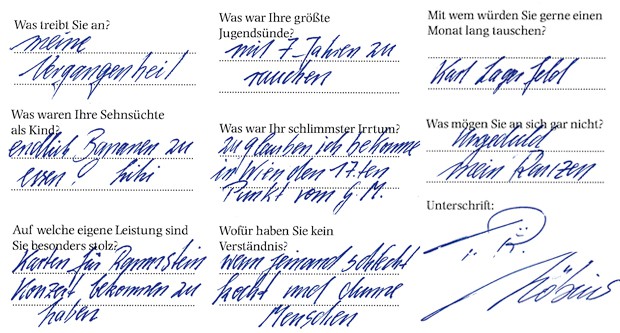 Was treibt Sie an?
meine
Vergangenheit
Was waren Ihre Sehnsüchte
als Kind?
endlich Bananen zu
essen! hihi
Auf welche eigene Leistung sind
Sie besonders stolz?
Karten für Rammstein
Konzert bekommen zu
haben
Was war Ihre größte
Jugendsünde?
mit 7 Jahren zu
rauchen
Was war Ihr schlimmster Irrtum?
zu glauben ich bekomme
in Wien den 17.ten
Punkt vom G.M.
Wofür haben Sie kein
Verständnis?
wenn jemand schlecht
kocht und dumme
Menschen
Mit wem würden Sie gerne einen
Monat lang tauschen?
Karl Lagerfeld
Was mögen Sie an sich gar nicht?
Ungeduld
mein
Unterschrift: